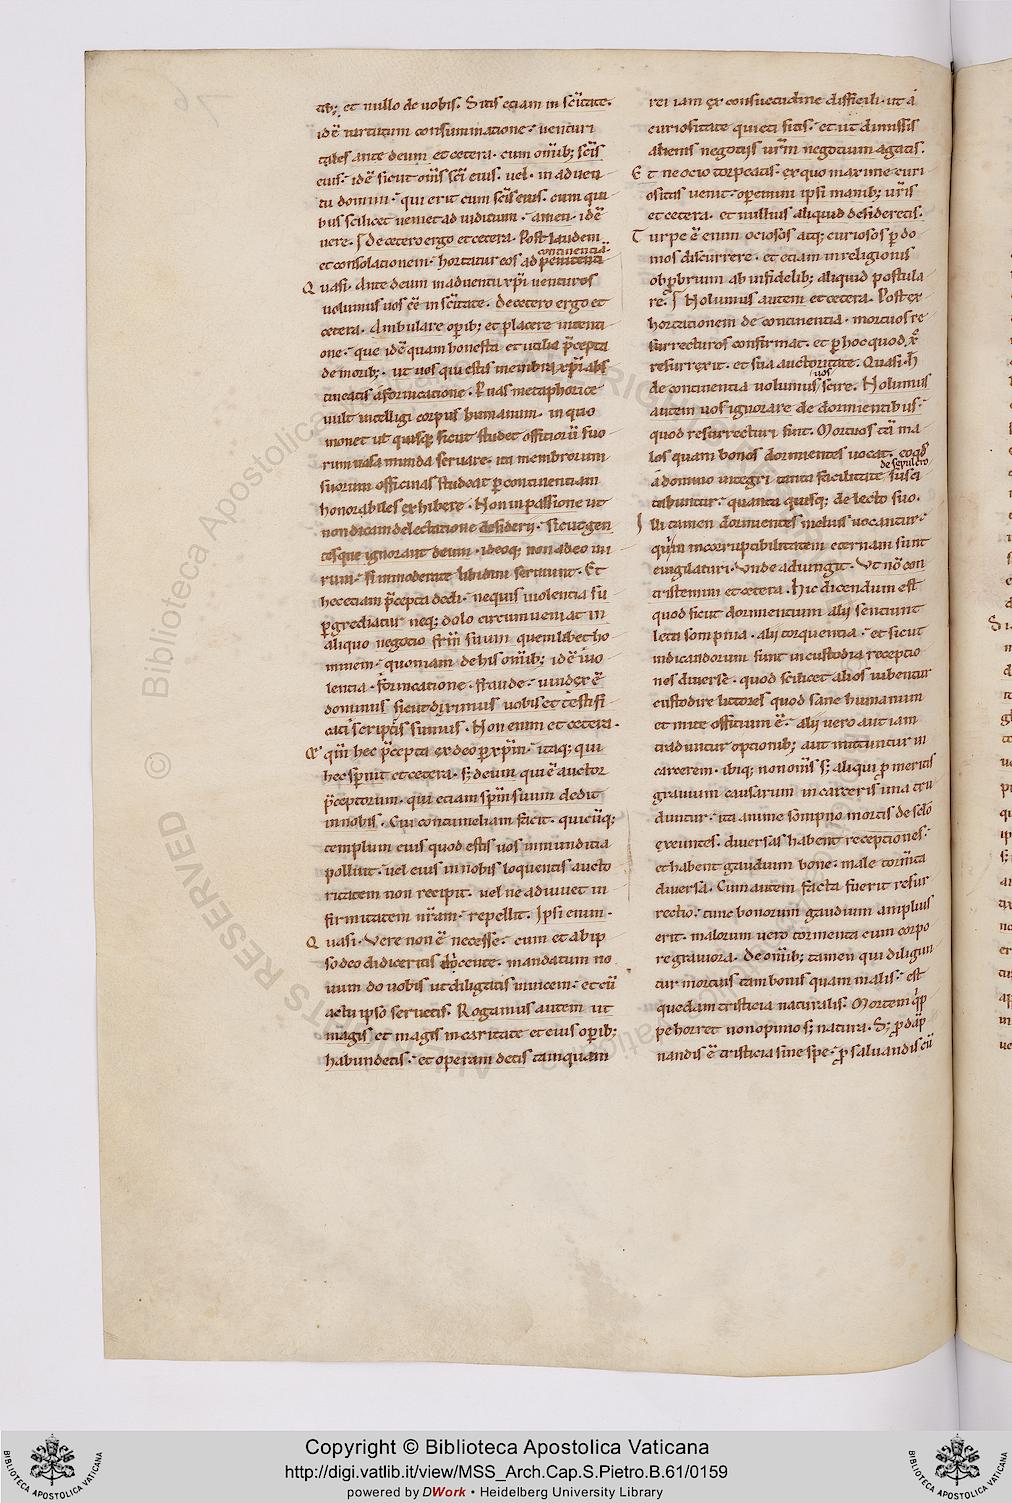 tib; et nullo de uobis. Sitis etiam in scitate.
idē uirtutum consummatione. uenturi
tales ante deum et cetera. cum omib; scis
eius. idē sicut oms sci eius. uel. in aduen
tu domini. qui erit cum scis eius. cum qui
bus scilicet ueniet ad iuditium. amen. idē
uere. De cetero ergo et cetera. Post laudem
et consolationem. hortatur eos ad penitenti
continentiā
Quasi. Ante deum in aduentu xpi uenturos
uolumus uos eē in scitate. de cetero ergo et
cetera. Ambulare opib; et placere intenti
one. que idē quam honesta et utilia pcepta
de morib;. ut uos qui estis membra xpi abs
tineatis a fornicatione. Vas metaphorice
uult intelligi corpus humanum. in quo
monet ut quisq; sicut studet officiorū suo
rum uasa munda seruare. ita membrorum
suorum officinas studeat p continentiam
honorabiles exhibere. Non in passione ut
non dicam delectatione desiderij. sicut gen
tes que ignorant deum. ideoq; non adeo mi
rum. si immoderate libidini seruiunt. Et
hec etiam pcepta dedi. nequis uiolentia su
pgrediatur neq; dolo circumueniat in
aliquo negocio frm suum quemlibet ho
minem. quoniam de his omib; idē uio
lentia. fornicatione. fraude. uindex ē
dominus sicut diximus uobis et testifi
cati scriptis sumus. Non enim et cetera.
qm hec pcepta ex deo p xpm. itaq; qui
hec spnit et cetera. s; deum qui ē auctor
pceptorum. qui etiam spm suum dedit
in nobis. Cui contumeliam facit. quicūq;
templum eius quod estis uos inmunditia
polluit. uel eius in nobis loquentis aucto
ritatem non recipit. uel ne adiuuet in
firmitatem nram. repellit. Ipsi enim.
Quasi. Vere non ē necesse. cum et ab ip
so deo didiceritis docente. mandatum no
uum do uobis ut diligatis inuicem. et cū
actu ipso seruetis. Rogamus autem ut
magis et magis in caritate et eius opib;
habundetis. et operam detis tamquam
rei iam ex consuetudine difficili. ut a
curiositate quieti sitis. et ut dimissis
alienis negotijs urm negotium agatis.
Et ne ocio torpeatis. ex quo maxime curi
ositas uenit. operemini ipsi manib; uris
et cetera. et nullius aliquid desideretis.
Turpe ē enim ociosos atq; curiosos p do
mos discurrere. et etiam in religionis
obpbrium ab infidelib; aliquid postula
re. Nolumus autem et cetera. Post ex
hortationem de continentia. mortuos re
surrecturos confirmat. et p hoc quod x̄
resurrexit. et sua auctoritate. Quasi. h
uos
de continentia uolumus scire. Nolumus
autem uos ignorare de dormientibus.
quod resurrecturi sint. Mortuos tā ma
los quam bonos dormientes uocat. eoqd
de sepulcro
a domino integri tanta facilitate susci
tabuntur. quanta quisq; de lecto suo.
Illi tamen dormientes melius uocantur.
qui in incorruptibilitatem eternam sunt
euigilaturi. Vnde adiungit. Vt nō con
tristemini et cetera. Hic dicendum est
quod sicut dormientium alij sentiunt
leta sompnia. alij torquentia. et sicut
indicandorum sunt in custodia receptio
nes diuerse. quod scilicet alios iubentur
custodire lictores quod sane humanum
et mite officium ē. alij uero aut iam
traduntur optionib; aut mittuntur in
carcerem. ibiq; non oms s; aliqui p meritis
grauium causarum in carceris ima tru
duntur. ita anime sompno mortis de sclo
exeuntes. diuersas habent receptiones.
et habent gaudium bone. male tormta
diuersa. Cum autem facta fuerit resur
rectio. tunc bonorum gaudium amplius
erit. malorum uero tormenta cum corpo
re grauiora. De omib; tamen qui diligun
tur mortuis tam bonis quam malis. est
quedam tristicia naturalis. Mortem qpp
pe horret non opinio s; natura. S; p dāp
nandis ē tristicia sine spe. p saluandis cū
Copyright © Biblioteca Apostolica Vaticana
http://digi.vatlib.it/view/MSS_Arch.Cap.S.Pietro.B.61/0159
powered by DWork • Heidelberg University Library
BIBLIOTECA APOSTOLICA VATICANA
BIBLIOTECA APOSTOLICA VATICANA